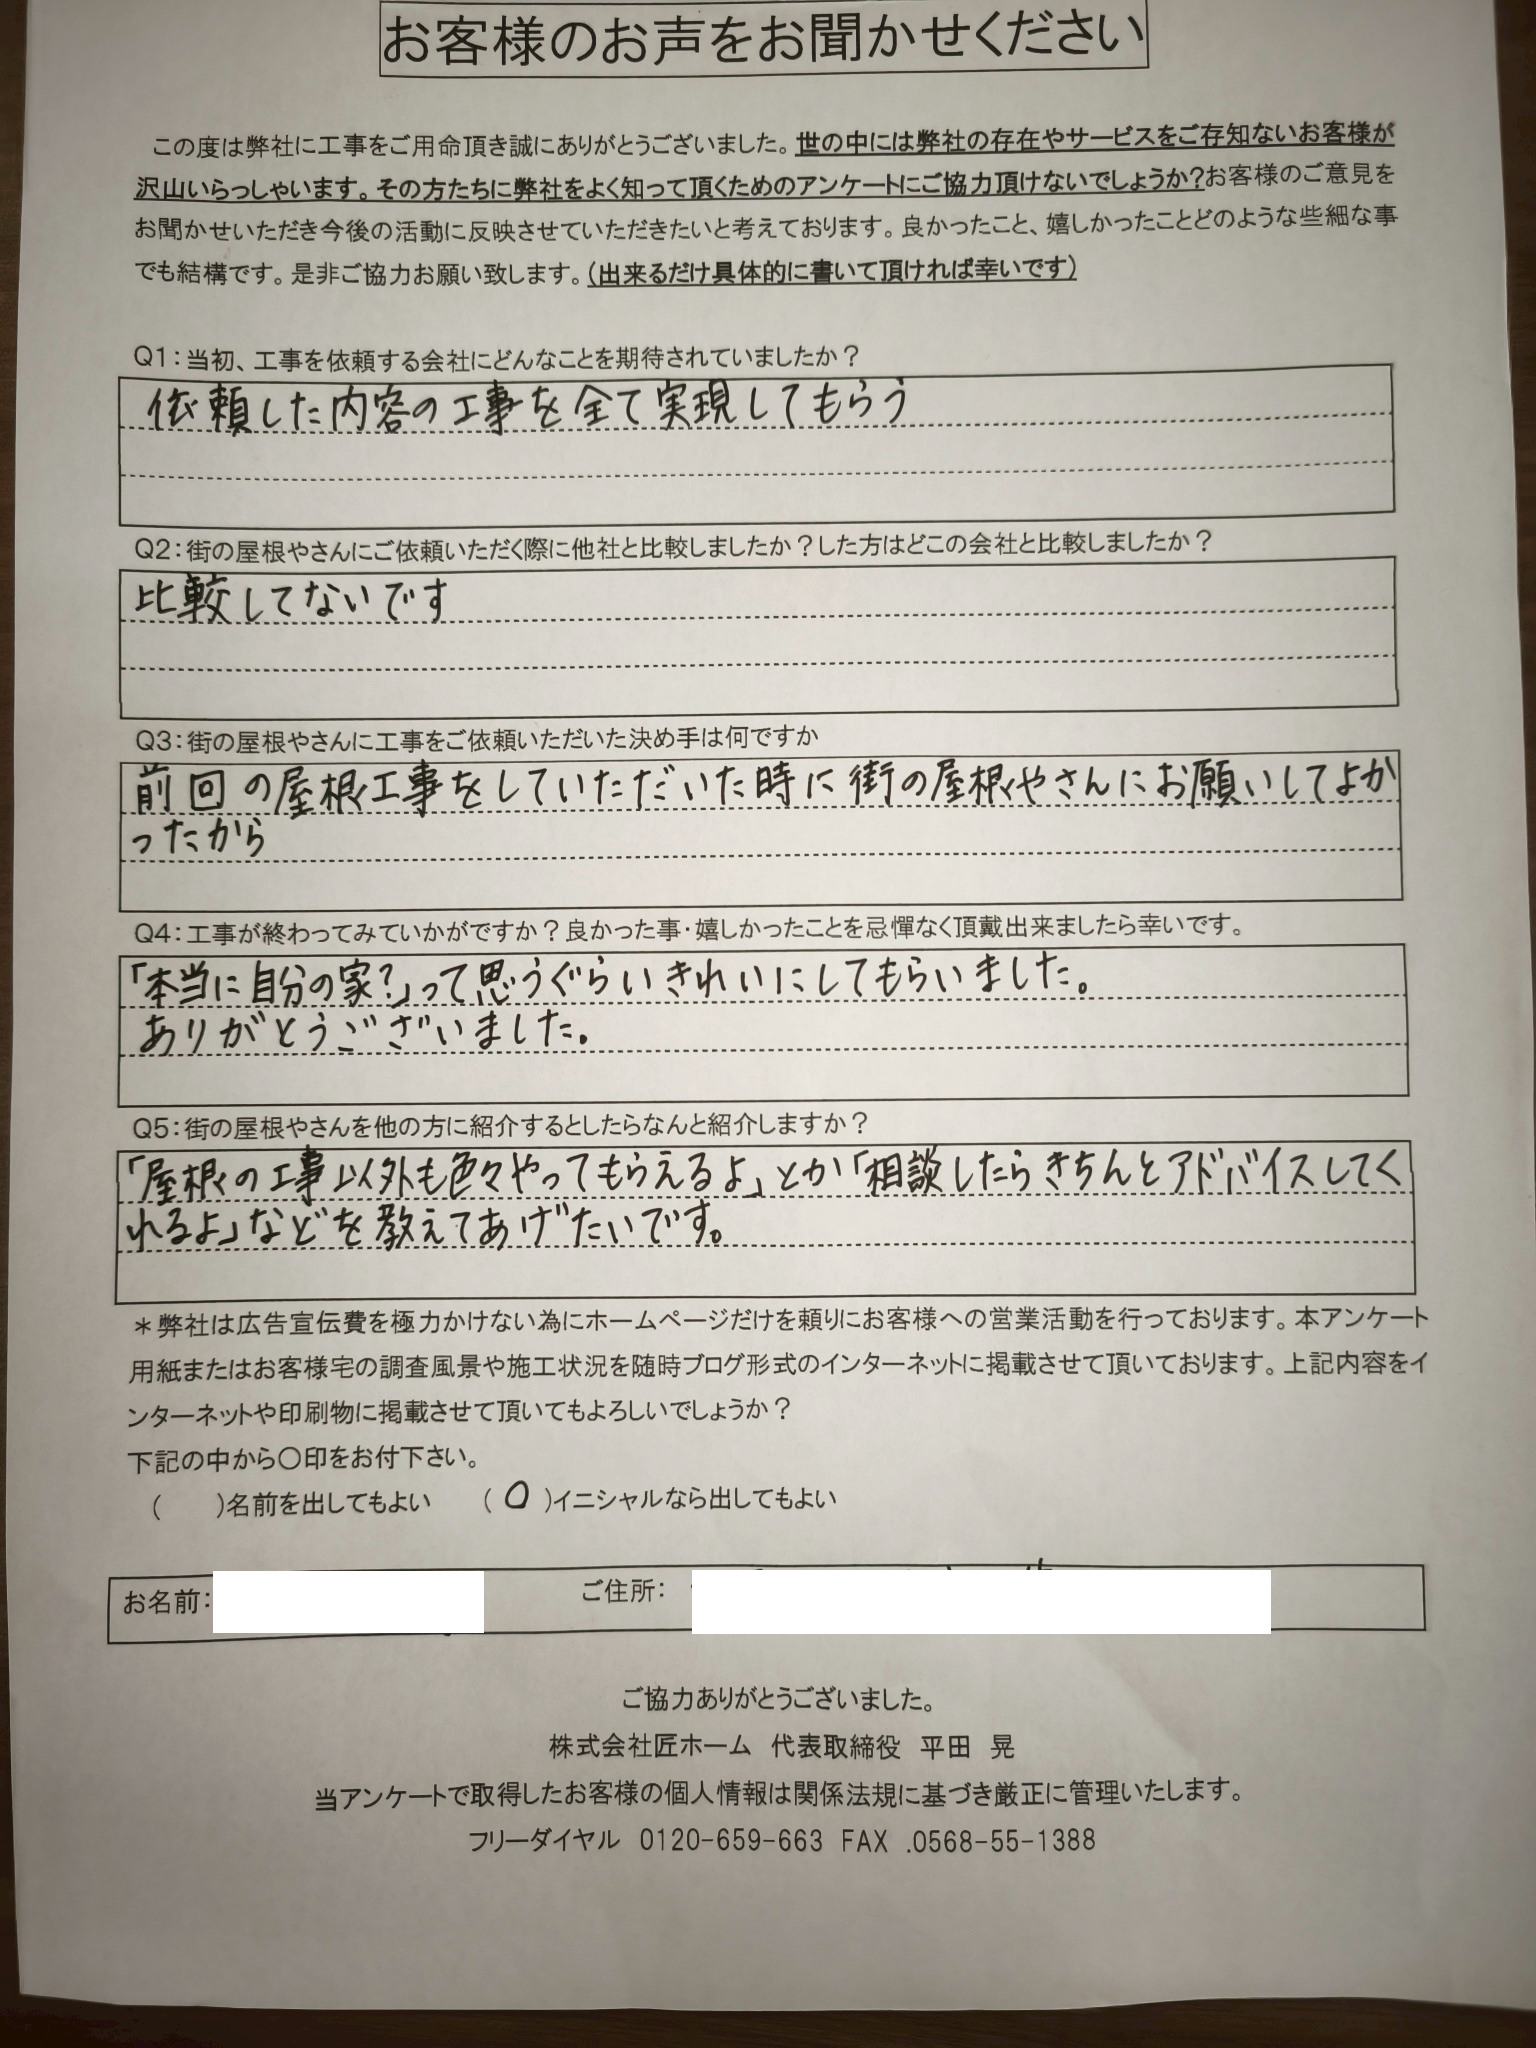 お客様のお声をお聞かせください
この度は弊社に工事をご用命頂き誠にありがとうございました。世の中には弊社の存在やサービスをご存知ないお客様が
沢山いらっしゃいます。その方たちに弊社をよく知って頂くためのアンケートにご協力頂けないでしょうか?お客様のご意見を
お聞かせいただき今後の活動に反映させていただきたいと考えております。良かったこと、嬉しかったことどのような些細な事
でも結構です。是非ご協力お願い致します。(出来るだけ具体的に書いて頂ければ幸いです)
Q1:当初、工事を依頼する会社にどんなことを期待されていましたか?
依頼した内容の工事を全て実現してもらう
Q2:街の屋根やさんにご依頼いただく際に他社と比較しましたか?した方はどこの会社と比較しましたか?
比較してないです
Q3:街の屋根やさんに工事をご依頼いただいた決め手は何ですか
前回の屋根工事をしていただいた時に街の屋根やさんにお願いしてよか
ったから
Q4:工事が終わってみていかがですか?良かった事・嬉しかったことを忌憚なく頂戴出来ましたら幸いです。
「本当に自分の家?」って思うぐらいきれいにしてもらいました。
ありがとうございました。
Q5:街の屋根やさんを他の方に紹介するとしたらなんと紹介しますか?
「屋根の工事以外も色々やってもらえるよ」とか「相談したらきちんとアドバイスしてく
れるよ」などを教えてあげたいです。
*弊社は広告宣伝費を極力かけない為にホームページだけを頼りにお客様への営業活動を行っております。本アンケート
用紙またはお客様宅の調査風景や施工状況を随時ブログ形式のインターネットに掲載させて頂いております。上記内容をイ
ンターネットや印刷物に掲載させて頂いてもよろしいでしょうか?
下記の中から〇印をお付下さい。
(　　)名前を出してもよい　(〇)イニシャルなら出してもよい
お名前:　ご住所:
ご協力ありがとうございました。
株式会社匠ホーム　代表取締役　平田　晃
当アンケートで取得したお客様の個人情報は関係法規に基づき厳正に管理いたします。
フリーダイヤル　0120-659-663　FAX .0568-55-1388